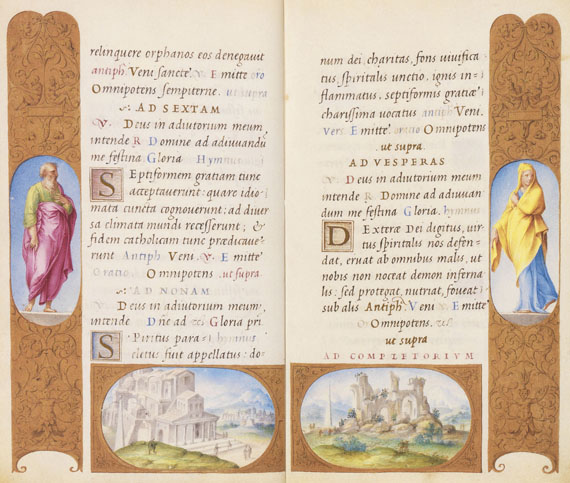 relinquere orphanos eos denegauit
antiph Veni sancte. V. Emitte oro
Omnipotens sempiterne. ut supra
AD SEXTAM
V. Deus in adiutorium meum
intende R Domine ad adiuuandū
me festina Gloria Hymnus
Septiformem gratiam tunc
acceptauerunt: quare idio-
mata cuncta cognouerunt: ad diuer
sa climata mundi recesserunt, &
fidem catholicam tunc praedicaue-
runt Antiph Veni. V. Emitte
Oratio. Omnipotens .ut supra.
AD NONAM
V. Deus in adiutorium meum,
intende Dñe ad Gloria pri
Spiritus para- hymnus
cletus fuit appellatus: do-
num dei, charitas, fons uiuifica
tus spiritalis unctio, ignis in-
flammatus, septiformis gratiae
charissima uocatus antiph Veni.
Vers Emitte oratio Omnipotens
ut supra
AD VESPERAS
V. Deus in adiutorium meum
intende R Domine ad adiuuan
dum me festina Gloria. hymnus
Dexterae Dei digitus, uir
tus spiritalis nos defen-
dat, eruat ab omnibus malis, ut
nobis non noceat demon inferna
lis, sed protegat, nutriat, foueat
sub alis Antiph Veni V Emitte
Omnipotens.
ut supra
AD COMPLETORIVM